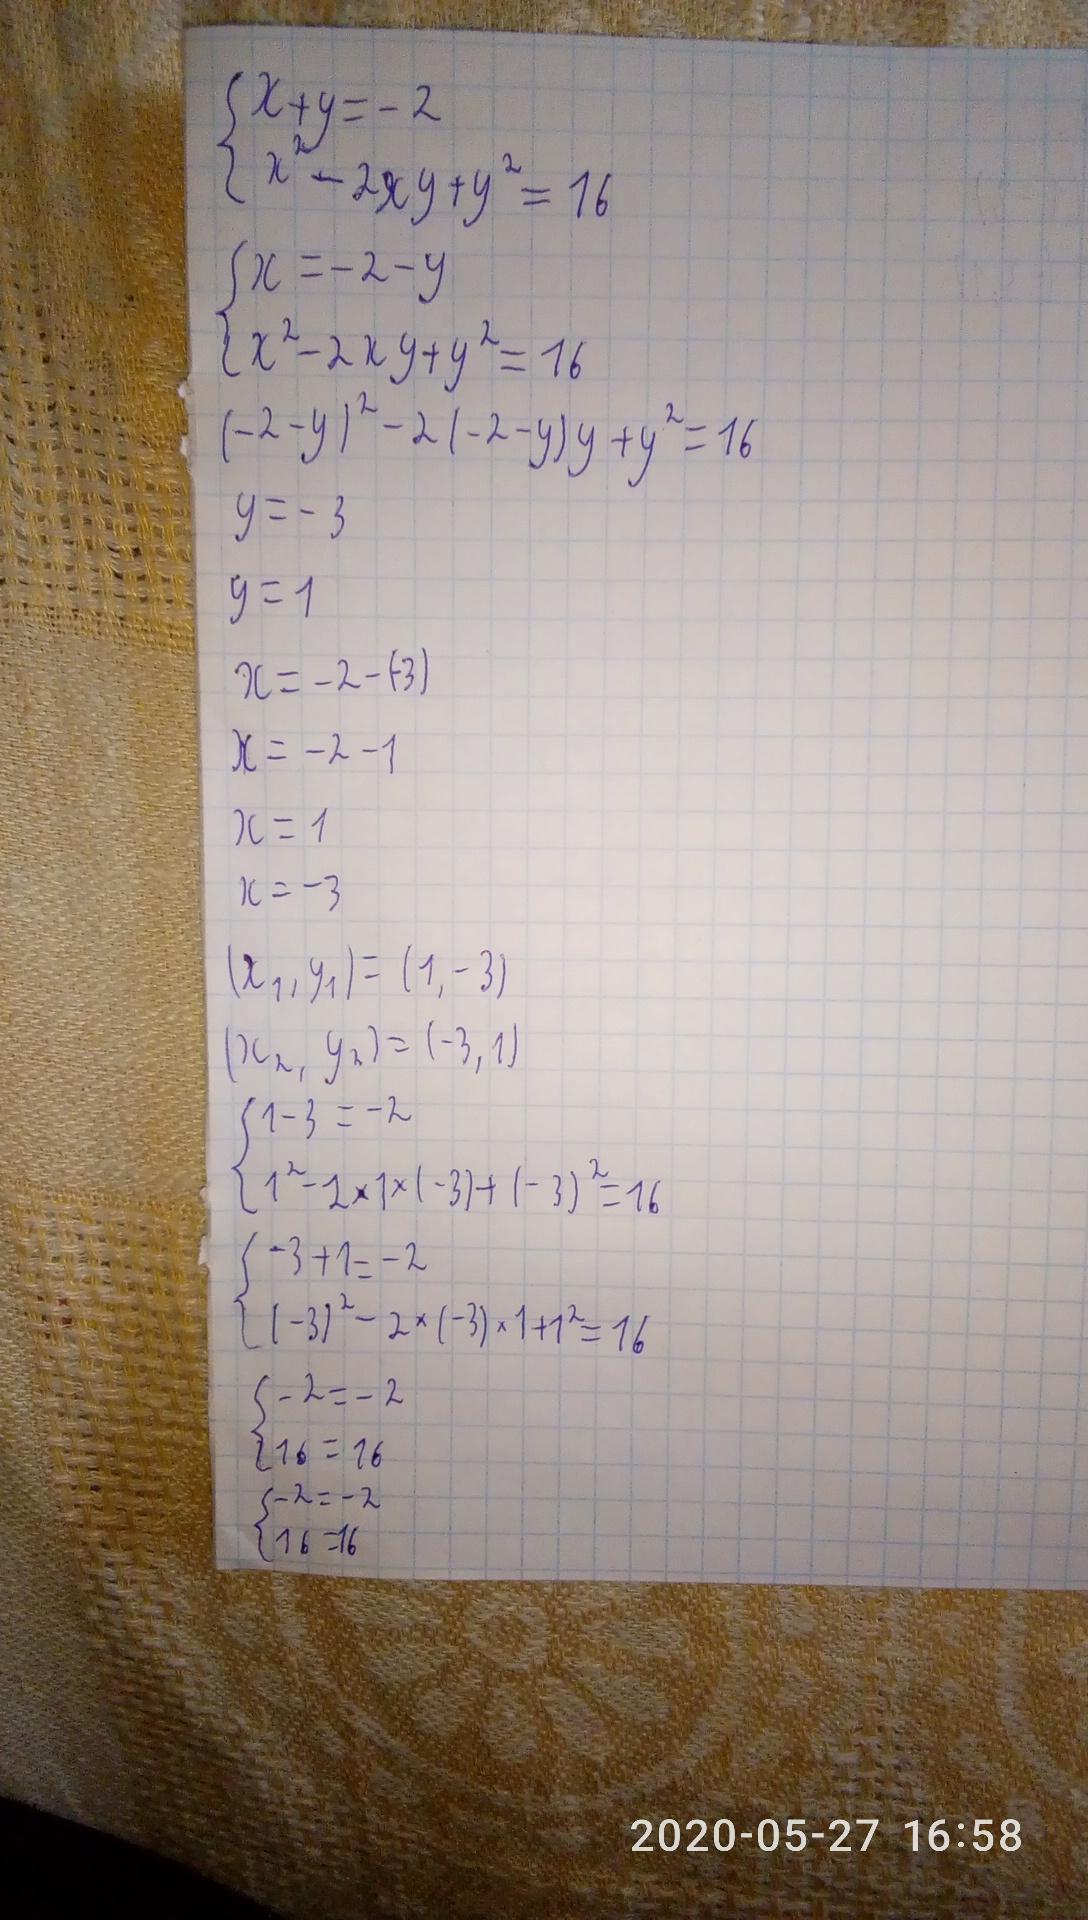 {x+y=-2
x²-2xy+y²=16
{x=-2-y
x²-2xy+y²=16
(-2-y)²-2(-2-y)y+y²=16
y=-3
y=1
x=-2-(-3)
x=-2-1
x=1
x=-3
(x₁,y₁)=(1,-3)
(x₂,y₂)=(-3,1)
{1-3=-2
1²-2×1×(-3)+(-3)²=16
{-3+1=-2
(-3)²-2×(-3)×1+1²=16
{-2=-2
16=16
{-2=-2
16=16
2020-05-27 16:58